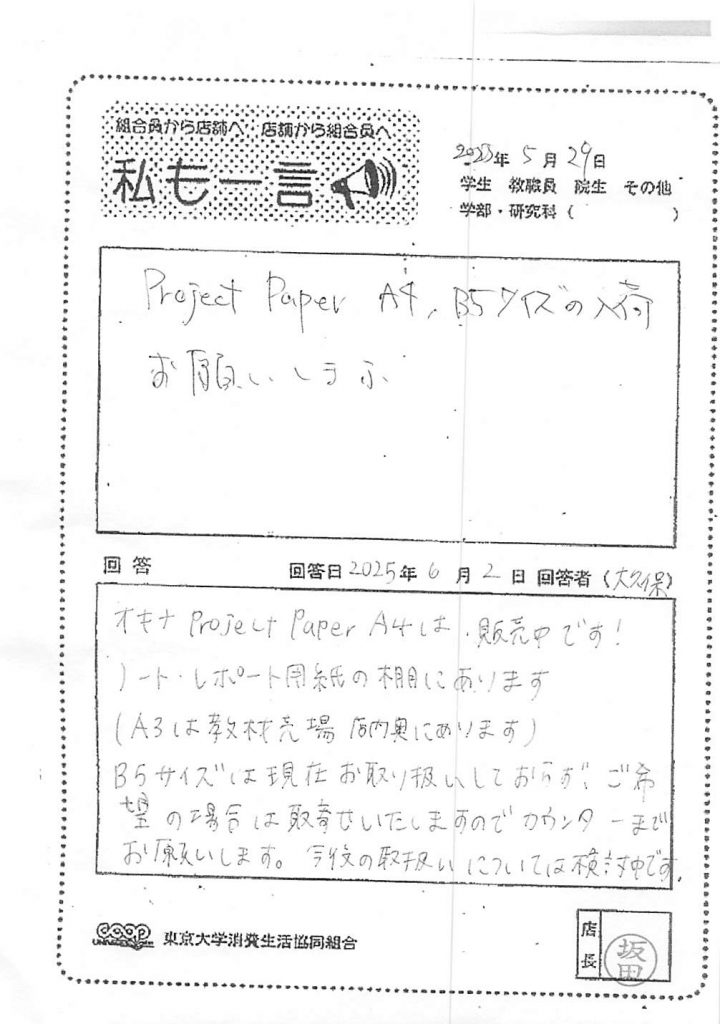 組合員から店舗へ 店舗から組合員へ
私も一言
2025年 5月 29日
学生 教職員 院生 その他
学部・研究科（ ）
Project Paper A4, B5サイズの入荷
お願いします
回答 回答日 2025年 6月 2日 回答者（大久保）
オキナ Project Paper A4は、販売中です！
ノート・レポート用紙の棚にあります
(A3は教材売場 店内奥にあります)
B5サイズは現在お取り扱いしておらず、ご希
望の場合は取寄せいたしますのでカウンターまで
お願いします。今後の取扱いについては検討中です。
coop
UNIVERSITY
東京大学消費生活協同組合
店長
坂田